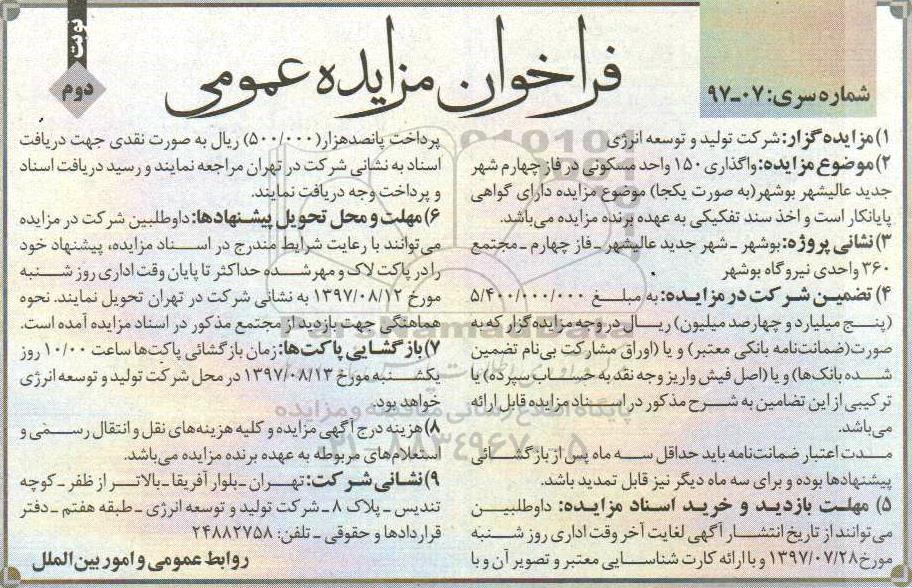 نوبت
دوم
فراخوان مزایده عمومی
شماره سری: ۰۷-۹۷
۱) مزایده گزار: شرکت تولید و توسعه انرژی
۲) موضوع مزایده: واگذاری ۱۵۰ واحد مسکونی در فاز چهارم شهر
جدید عالیشهر بوشهر (به صورت یکجا) موضوع مزایده دارای گواهی
پایانکار است و اخذ سند تفکیکی به عهده برنده مزایده می‌باشد.
۳) نشانی پروژه: بوشهر ـ شهر جدید عالیشهر ـ فاز چهارم ـ مجتمع
۳۶۰ واحدی نیروگاه بوشهر
۴) تضمین شرکت در مزایده: به مبلغ ۵/۴۰۰/۰۰۰/۰۰۰
(پنج میلیارد و چهارصد میلیون) ریال در وجه مزایده گزار که به
صورت (ضمانت‌نامه بانکی معتبر) و یا (اوراق مشارکت بی‌نام تضمین
شده بانک‌ها) و یا (اصل فیش واریز وجه نقد به حساب سپرده) یا
ترکیبی از این تضامین به شرح مذکور در اسناد مزایده قابل ارائه
می‌باشد.
مدت اعتبار ضمانت‌نامه باید حداقل سه ماه پس از بازگشائی
پیشنهادها بوده و برای سه ماه دیگر نیز قابل تمدید باشد.
۵) مهلت بازدید و خرید اسناد مزایده: داوطلبین
می‌توانند از تاریخ انتشار آگهی لغایت آخر وقت اداری روز شنبه
مورخ ۱۳۹۷/۰۷/۲۸ و با ارائه کارت شناسایی معتبر و تصویر آن و با
پرداخت پانصدهزار (۵۰۰/۰۰۰) ریال به صورت نقدی جهت دریافت
اسناد به نشانی شرکت در تهران مراجعه نمایند و رسید دریافت اسناد
و پرداخت وجه دریافت نمایند.
۶) مهلت و محل تحویل پیشنهادها: داوطلبین شرکت در مزایده
می‌توانند با رعایت شرایط مندرج در اسناد مزایده، پیشنهاد خود
را در پاکت لاک و مهر شده حداکثر تا پایان وقت اداری روز شنبه
مورخ ۱۳۹۷/۰۸/۱۲ به نشانی شرکت در تهران تحویل نمایند. نحوه
هماهنگی جهت بازدید از مجتمع مذکور در اسناد مزایده آمده است.
۷) بازگشایی پاکت‌ها: زمان بازگشائی پاکت‌ها ساعت ۱۰/۰۰ روز
یکشنبه مورخ ۱۳۹۷/۰۸/۱۳ در محل شرکت تولید و توسعه انرژی
خواهد بود.
۸) هزینه درج آگهی مزایده و کلیه هزینه‌های نقل و انتقال رسمی و
استعلام‌های مربوطه به عهده برنده مزایده می‌باشد.
۹) نشانی شرکت: تهران ـ بلوار آفریقا ـ بالاتر از ظفر ـ کوچه
تندیس ـ پلاک ۸ ـ شرکت تولید و توسعه انرژی ـ طبقه هفتم ـ دفتر
قراردادها و حقوقی ـ تلفن: ۲۴۸۸۲۷۵۸
روابط عمومی و امور بین الملل
پایگاه اطلاع رسانی مناقصه و مزایده